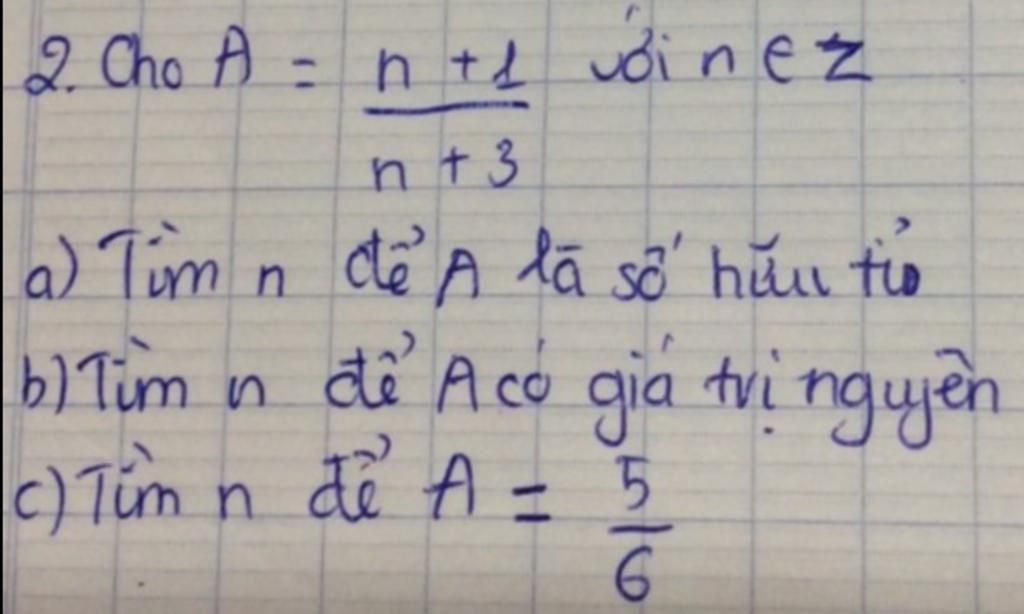 2. Cho A = n + 1 với n ∈ Z
n + 3
a) Tìm n để A là số hữu tỉ
b) Tìm n để A có giá trị nguyên
c) Tìm n để A = 5
6